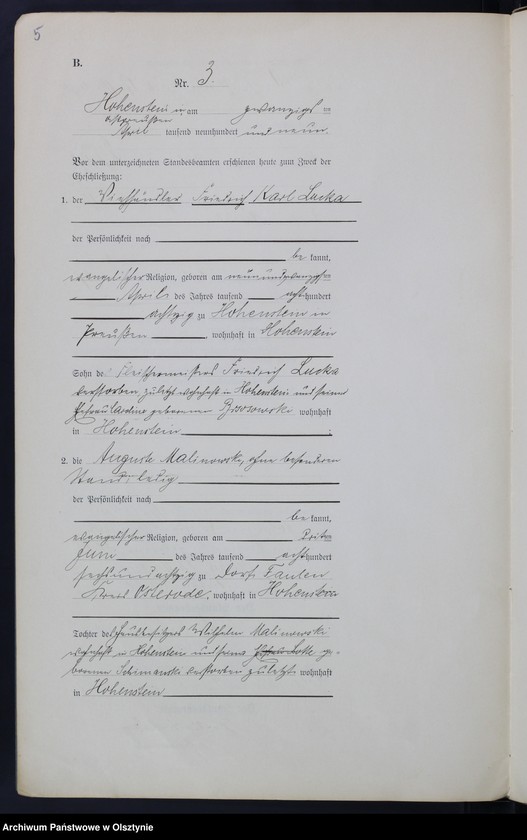 5
B.
Nr. 3.
Hohenstein in am zwanzigsten
Ostpreußen
April tausend neunhundert und neun.
Vor dem unterzeichneten Standesbeamten erschienen heute zum Zweck der
Eheschließung:
1. der Viehhändler Friedrich Karl Lucka
der Persönlichkeit nach
be kannt,
evangelischer Religion, geboren am neunundzwanzigsten
April des Jahres tausend achthundert
achtzig zu Hohenstein in
Preußen, wohnhaft in Hohenstein
Sohn des Fleischermeisters Friedrich Lucka
verstorben zuletzt wohnhaft in Hohenstein und seiner
Ehefrau geborenen wohnhaft
in Hohenstein;
2. die Auguste Malinowski, ohne besonderen
Stand, ledig
der Persönlichkeit nach
be kannt,
evangelischer Religion, geboren am
Juni des Jahres tausend achthundert
sechsundachtzig zu Dorf Faulen
Kreis Osterode, wohnhaft in Hohenstein
Tochter des Wilhelm Malinowski
wohnhaft in Hohenstein und seiner Lotte ge-
borenen Schimanski verstorben zuletzt wohnhaft
in Hohenstein
Archiwum Państwowe w Olsztynie